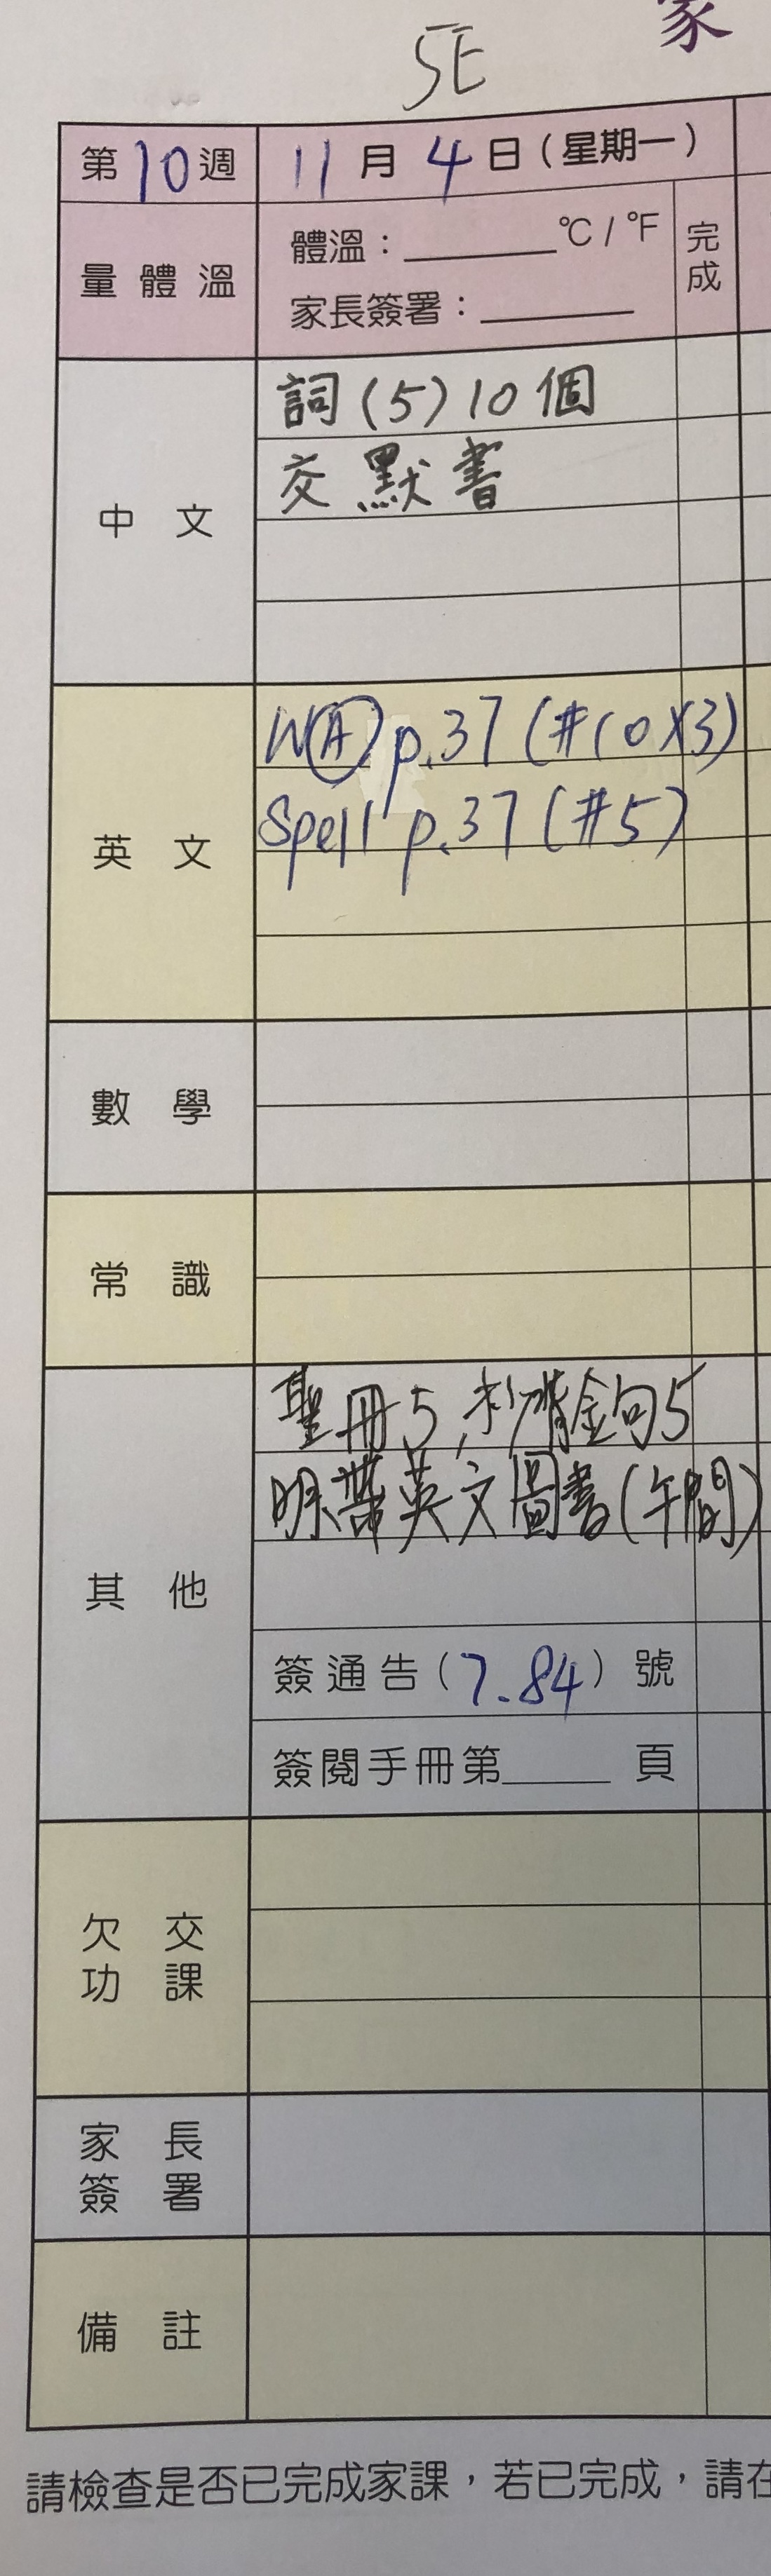 家
5E
第10週 11月4日(星期一)
量體溫 體溫：______°C / °F 完成
家長簽署：______
中文
詞(5)10個
交默書
英文
W(A) p.37 (#10X3)
Spell p.37 (#5)
數學
常識
其他
聖冊5, 背金句5
明帶英文圖書(午間)
簽通告(7.84)號
簽閱手冊第_____頁
欠交功課
家長簽署
備註
請檢查是否已完成家課，若已完成，請在